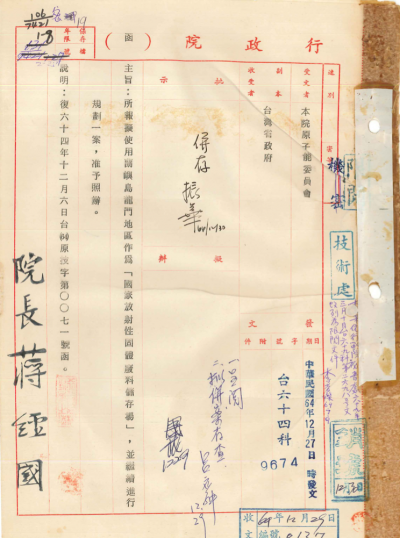 行政院（　）函
保存
年限
號
19
1-8
速別
密等
機密
受文者
本院原子能委員會
副本
收受者
台灣省政府
批示
擬辦
併存
振華
發文
日期
字號
附件
中華民國64年12月27日 時發文
台六十四科
9674
主旨：所報擬使用蘭嶼島龍門地區作為「國家放射性固體廢料儲存場」，並繼續進行
規劃一案，准予照辦。
說明：復六十四年十二月六日台(64)原技字第〇〇七一號函。
院長 蔣經國
技術處
一、呈閱
二、擬併案存查
12/29
收文
64年12月29日
編號
0137